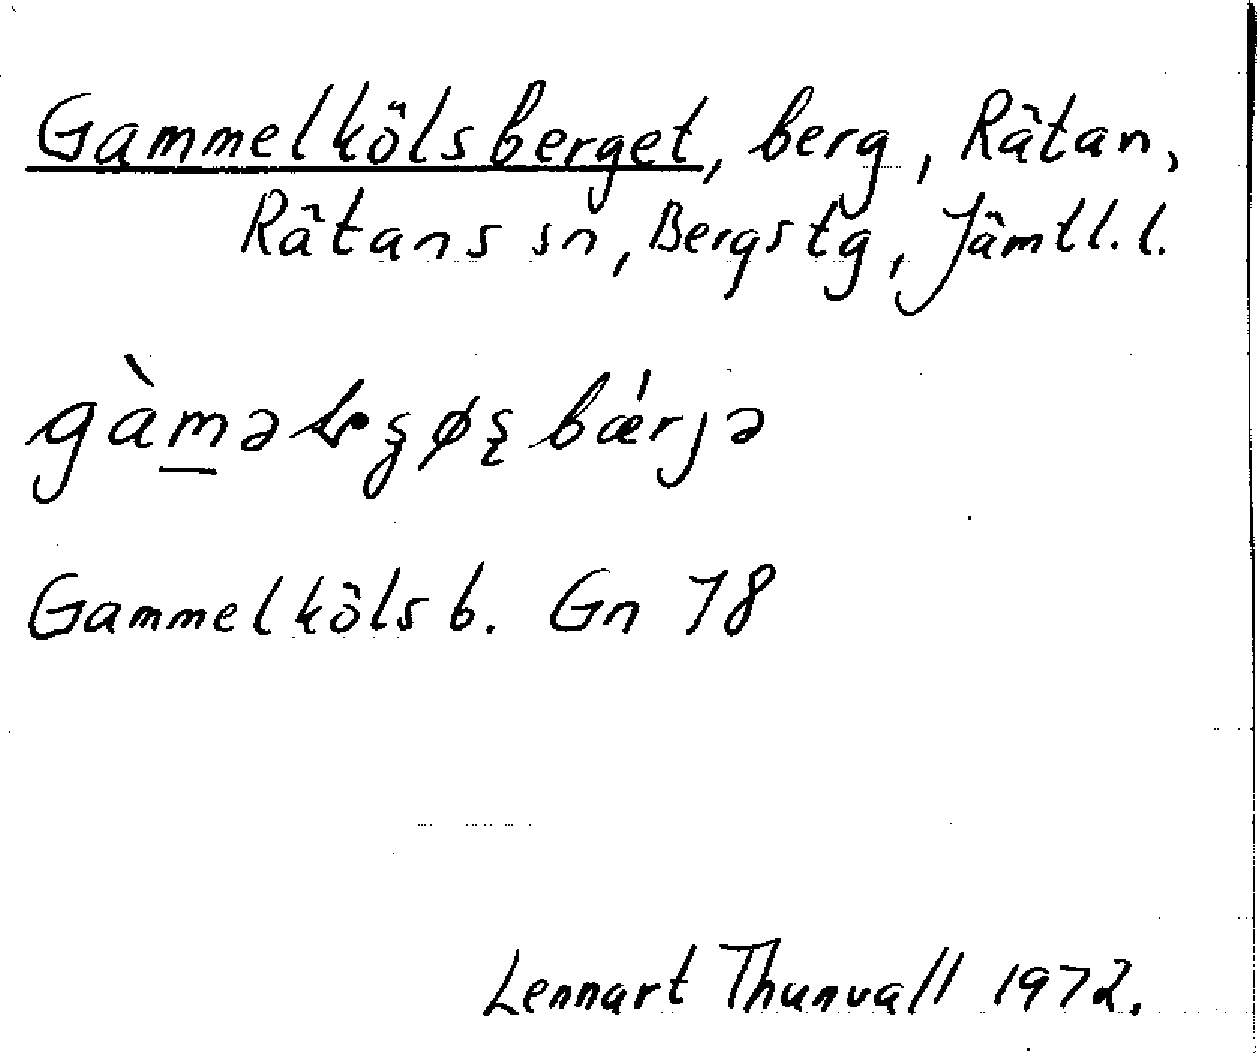 Gammelkölsberget, berg, Rätan,
Rätans sn, Bergs tg, Jämtl. l.
Gammelköls b. Gn 78
Lennart Thunvall 1972.